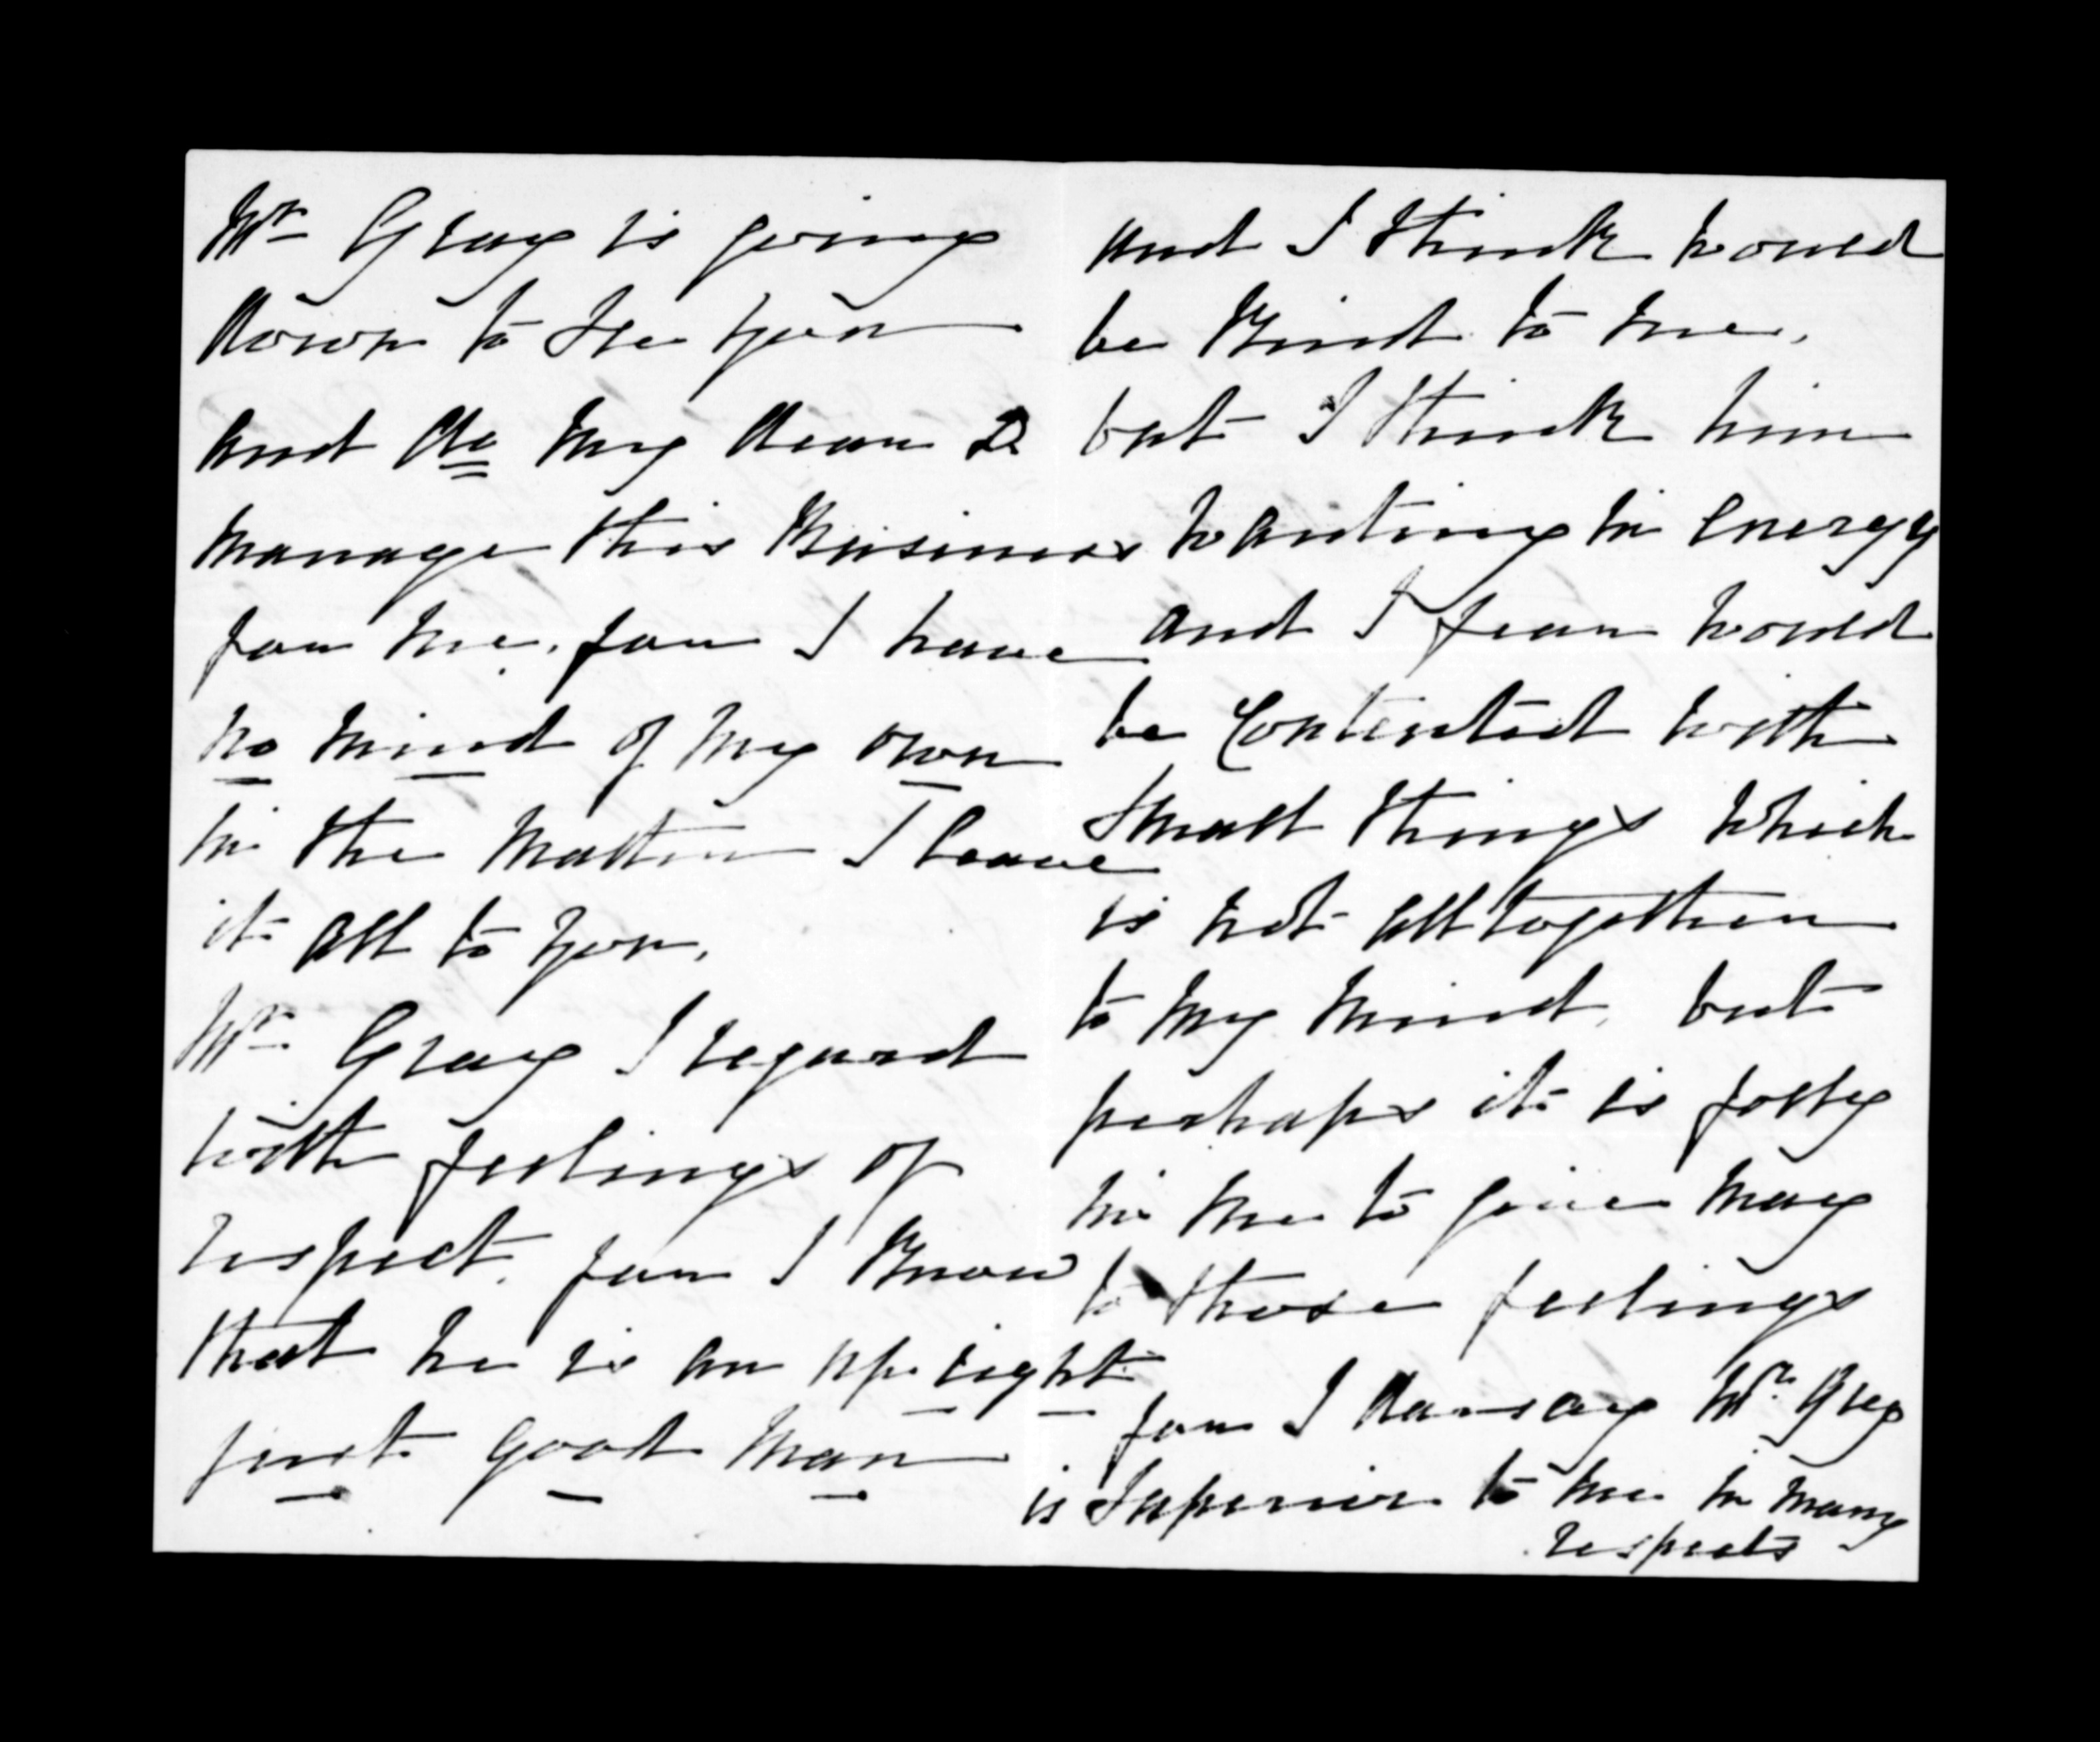 Mr Gray is going
down to see you
and do my dear D
manage this Business
for me, for I have
no mind of my own
in the matter I leave
it all to you.
Mr Gray I regard
with feelings of
respect, for I know
that he is an upright
just good man
and I think would
be kind to me,
but I think him
wanting in energy
and I fear would
be contented with
small things which
is not alltogether
to my mind, but
perhaps it is folly
in me to give way
to those feelings
for I daresay Mr Grey
is superior to me in many
respects